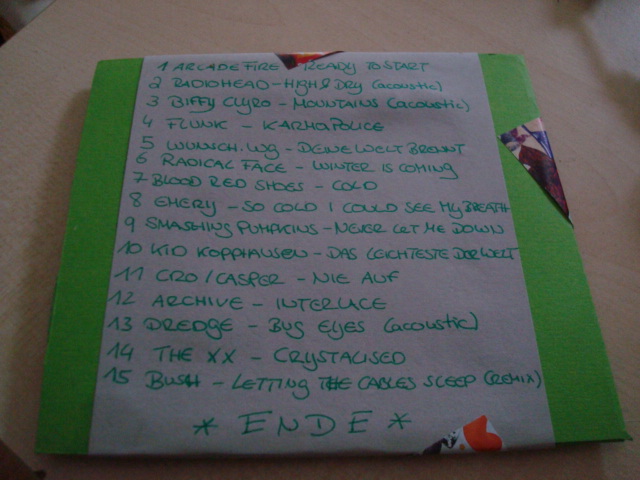 1 ARCADE FIRE - READY TO START
2 RADIOHEAD - HIGH & DRY (acoustic)
3 BIFFY CLYRO - MOUNTAINS (acoustic)
4 FLUNK - KARMA POLICE
5 WUNSCH.WG - DEINE WELT BRENNT
6 RADICAL FACE - WINTER IS COMING
7 BLOOD RED SHOES - COLD
8 EMERY - SO COLD I COULD SEE MY BREATH
9 SMASHING PUMPKINS - NEVER LET ME DOWN
10 KID KOPPHAUSEN - DAS LEICHTESTE DER WELT
11 CRO / CASPER - NIE AUF
12 ARCHIVE - INTERLACE
13 DREDGE - BUG EYES (acoustic)
14 THE XX - CRYSTALISED
15 BUSH - LETTING THE CABLES SLEEP (REMIX)
* ENDE *